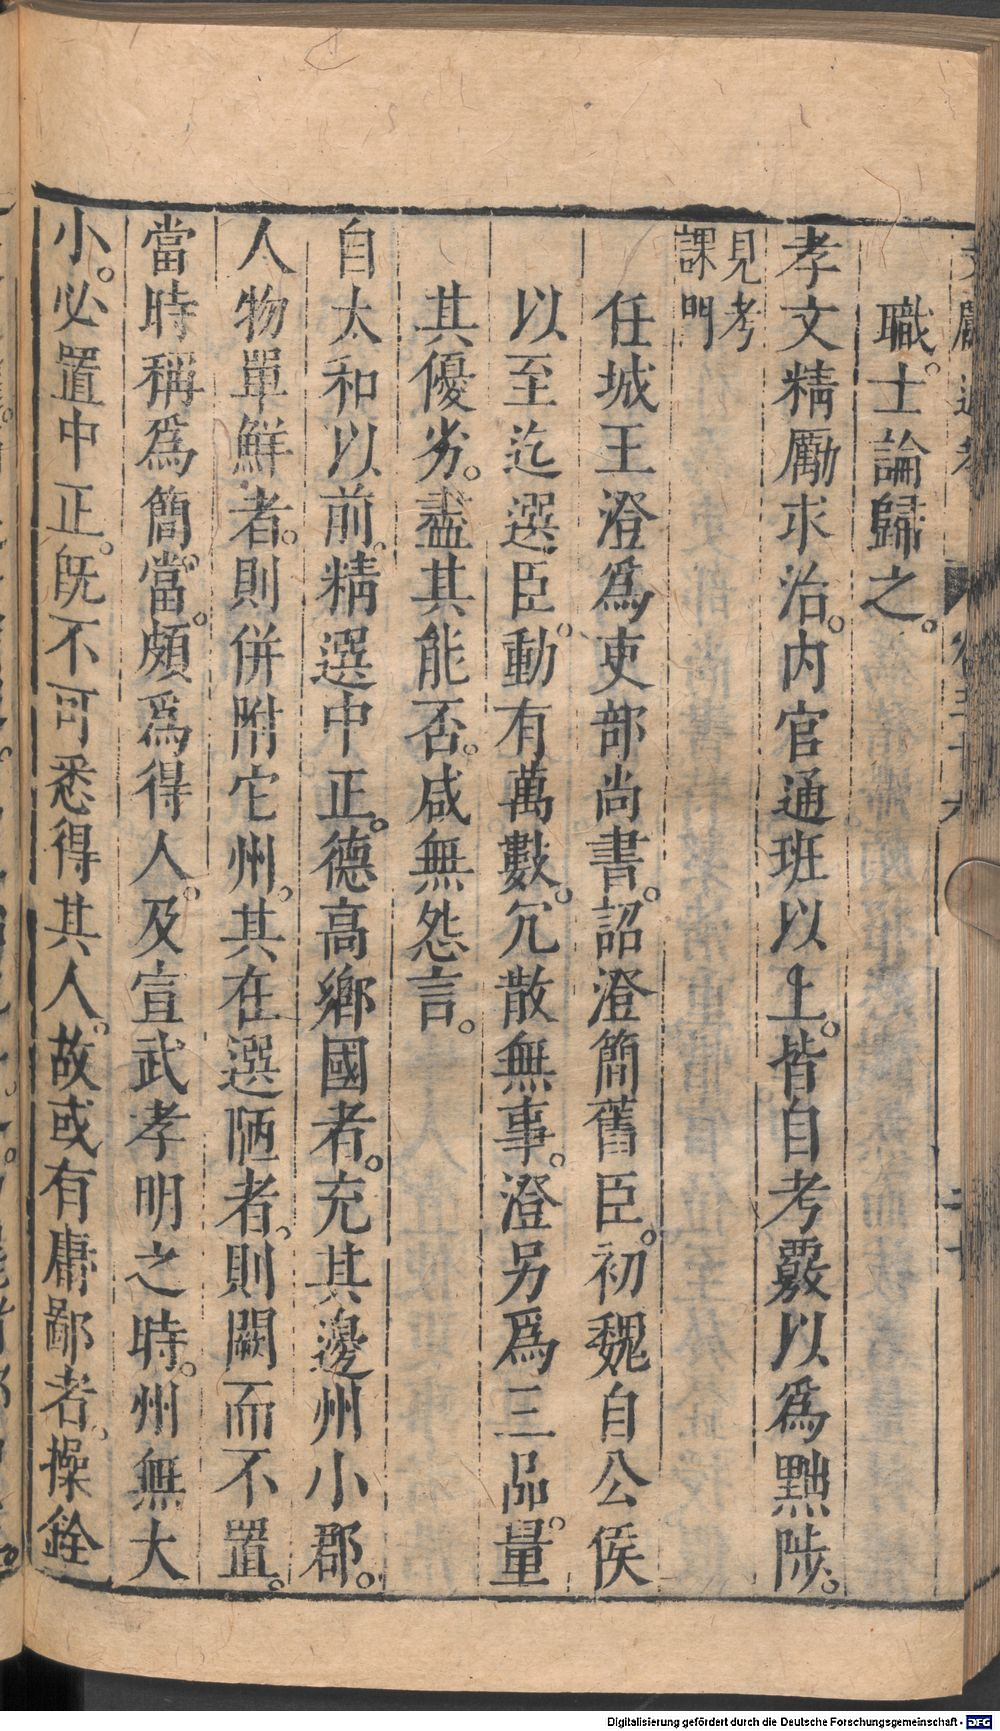 職。士論歸之。
孝文精勵求治。内官通班以上。皆自考覈以爲黜陟。
見考
課門
任城王澄爲吏部尚書。詔澄簡舊臣。初魏自公侯
以至迄選臣。動有萬數。冗散無事。澄另爲三品。量
其優劣。盡其能否。咸無怨言。
自太和以前。精選中正。德高鄉國者。充其邊州小郡。
人物單鮮者。則併附它州。其在選陋者。則闕而不置。
當時稱爲簡當。頗爲得人。及宣武孝明之時。州無大
小。必置中正。旣不可悉得其人。故或有庸鄙者。操銓
Digitalisierung gefördert durch die Deutsche Forschungsgemeinschaft - DFG